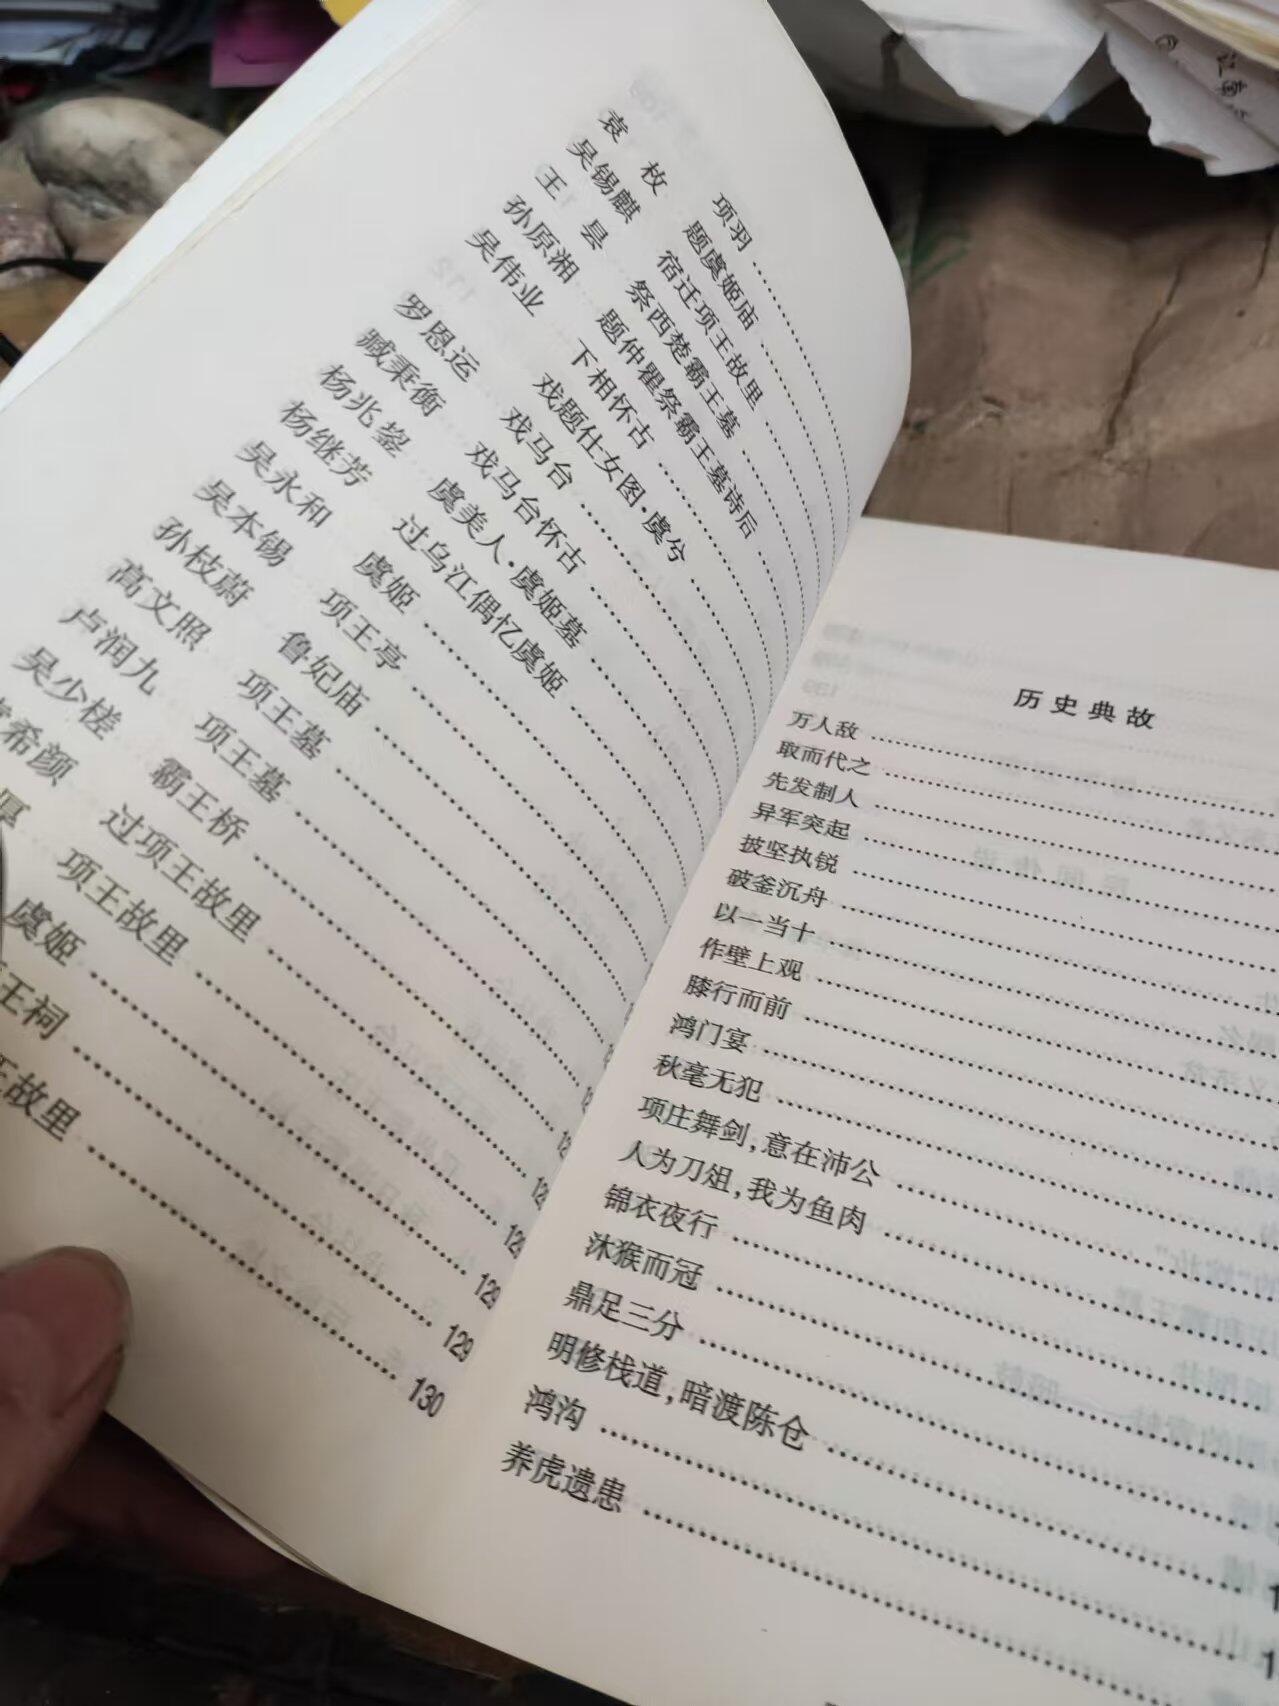 袁枚 项羽
吴锡麒 题虞姬庙
王昙 宿迁项王故里
孙原湘 祭西楚霸王墓
吴伟业 题仲瞿祭霸王墓诗后
下相怀古
罗恩运 戏题仕女图·虞兮
臧秉衡 戏马台
杨兆鋆 戏马台怀古
杨继芳 虞美人·虞姬墓
吴永和 过乌江偶忆虞姬
吴本锡 虞姬
孙枝蔚 项王亭
高文照 鲁妃庙
卢润九 项王墓
吴少槎 项王墓
希颜 霸王桥
厚 过项王故里
项王故里
虞姬 129
王祠 129
王故里 130
历史典故
万人敌
取而代之
先发制人
异军突起
披坚执锐
破釜沉舟
以一当十
作壁上观
膝行而前
鸿门宴
秋毫无犯
项庄舞剑,意在沛公
人为刀俎,我为鱼肉
锦衣夜行
沐猴而冠
鼎足三分
明修栈道,暗渡陈仓
鸿沟
养虎遗患